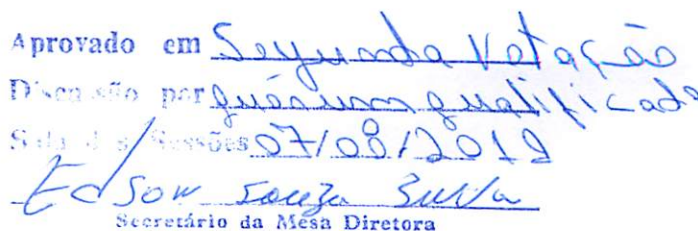 Aprovado em Segunda Votação
Discussão por quórum qualificado
Sala das Sessões 07/08/2012
Edson Souza Silva
Secretário da Mesa Diretora